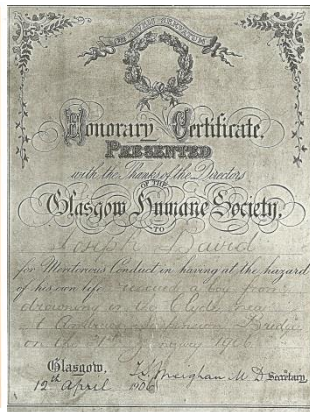 OB CIVEM SERVATUM
Honorary Certificate,
PRESENTED
with the Thanks of the Directors
OF THE
Glasgow Humane Society,
TO
Joseph David
for Meritorious Conduct in having at the hazard
of his own life rescued a boy from
drowning in the Clyde near
Bridge
on the 1906
Glasgow,
12th April 1906
Meighan M D Secretary.